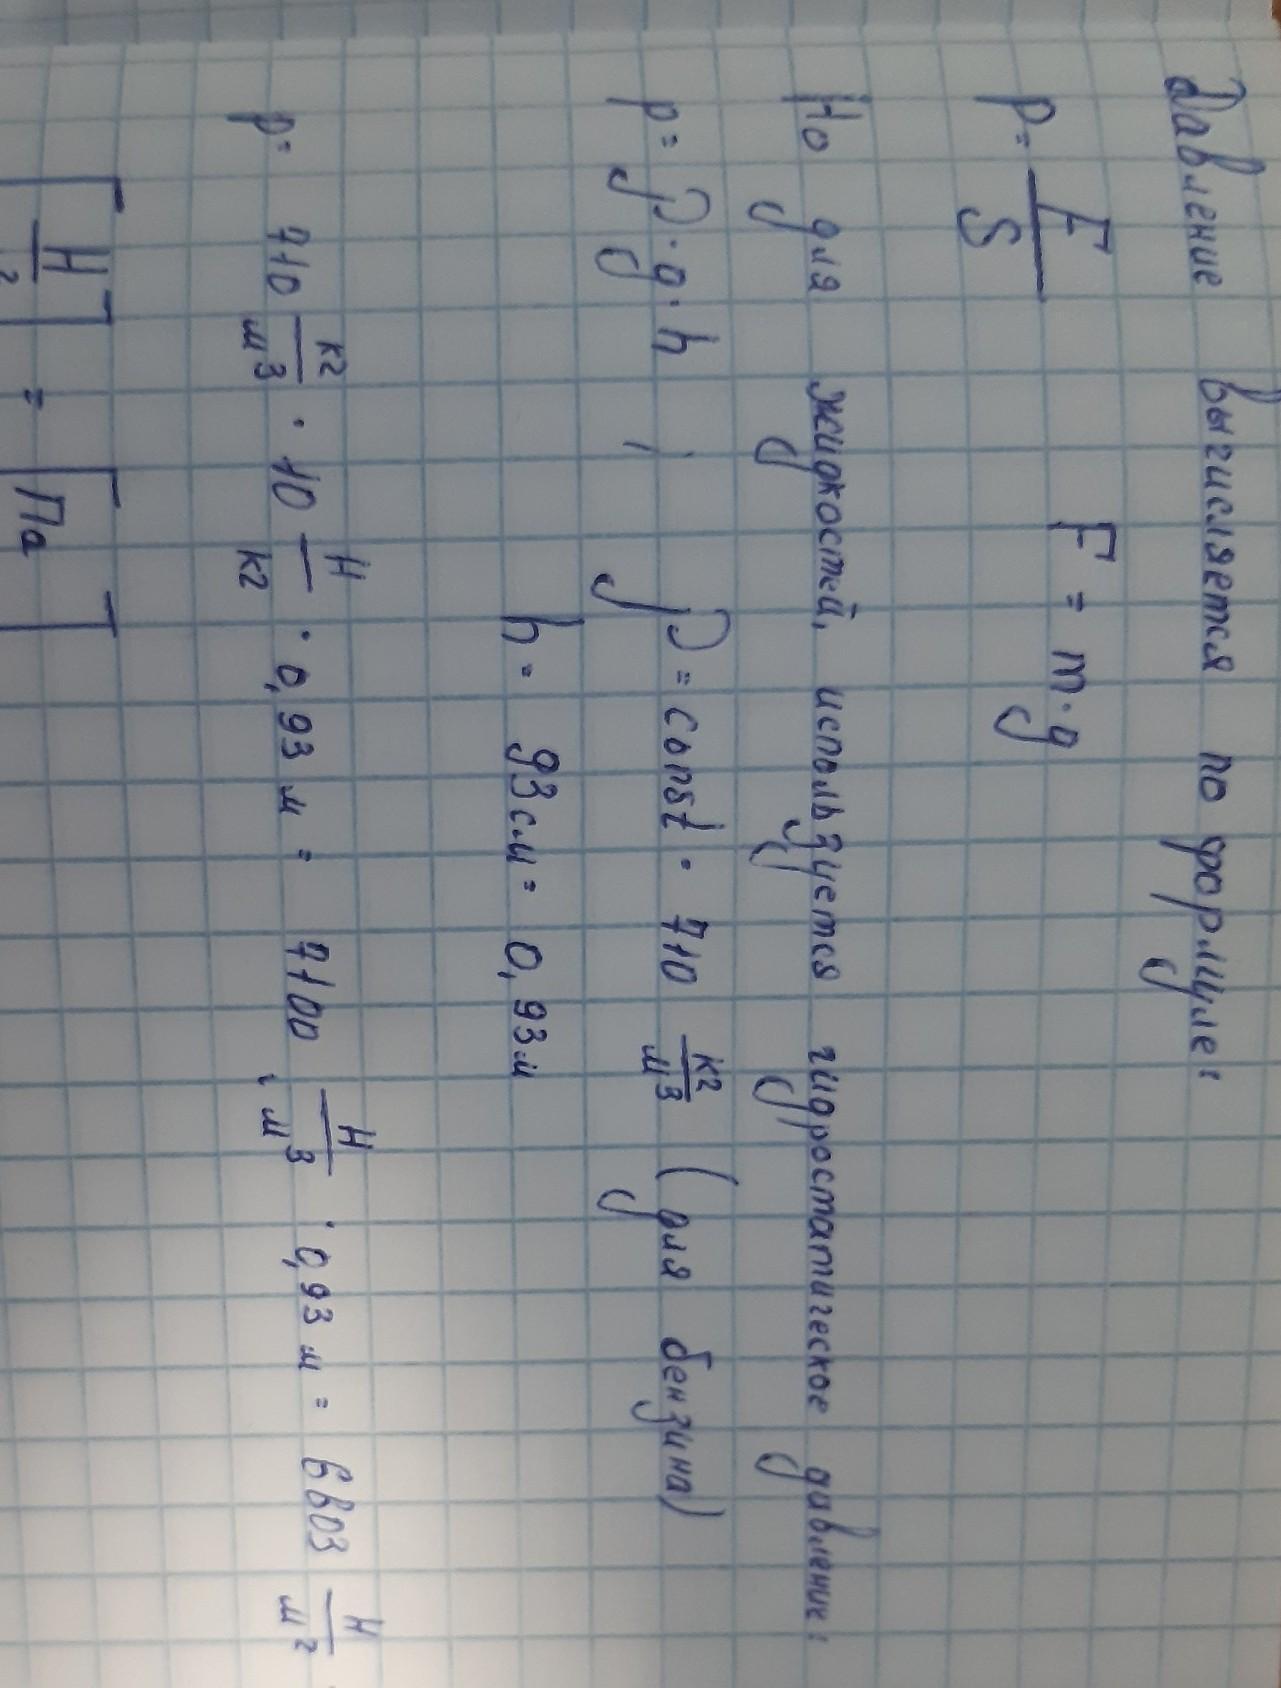 Давление вычисляется по формуле:
p = F/S F = m·g
Но для жидкостей, используется гидростатическое давление:
p = ρ·g·h ; ρ = const = 710 кг/м³ (для бензина)
h = 93 см = 0,93 м
p = 710 кг/м³ · 10 Н/кг · 0,93 м = 7100 Н/м³ · 0,93 м = 6603 Н/м²
[Н/м²] = [Па]